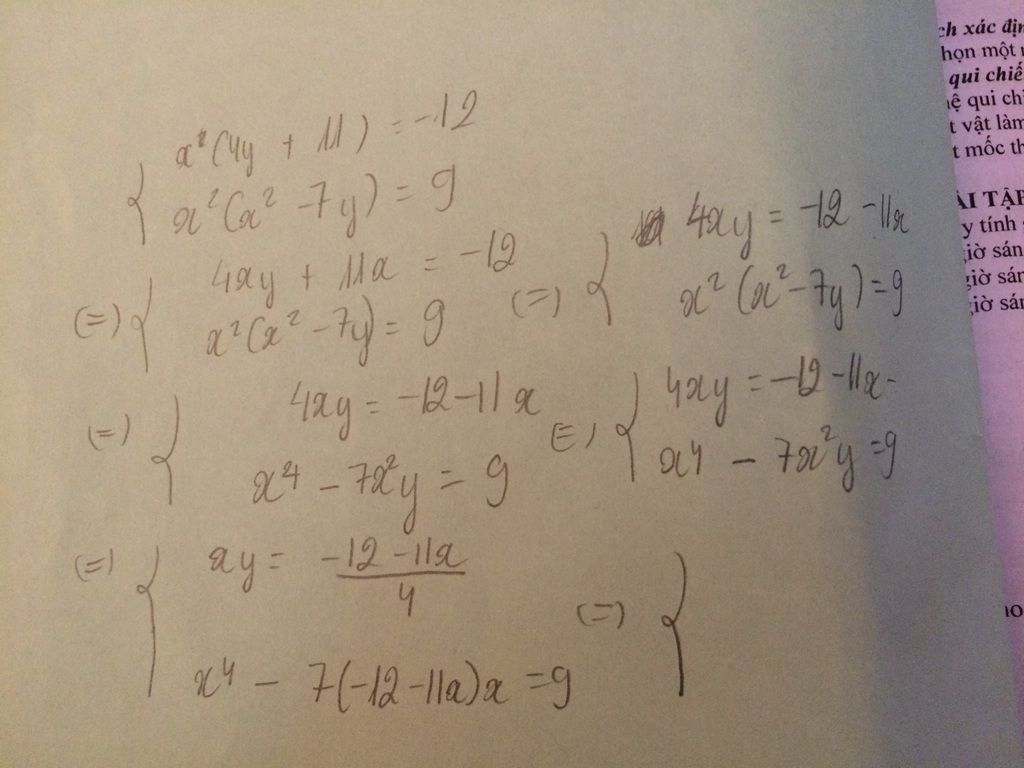 x²(4y + 11) = -12
x²(x² - 7y) = 9
(=) 4xy + 11x = -12
x²(x² - 7y) = 9
(=) 4xy = -12 - 11x
x²(x² - 7y) = 9
(=) 4xy = -12 - 11x
x⁴ - 7x²y = 9
(=) 4xy = -12 - 11x
x⁴ - 7x²y = 9
(=) xy = (-12 - 11x)/4
x⁴ - 7(-12 - 11x)x = 9
(=) {
xác địn
một
qui chiế
qui chi
vật làm
mốc th
TẬP
tính
giờ sán
giờ sán
giờ sán